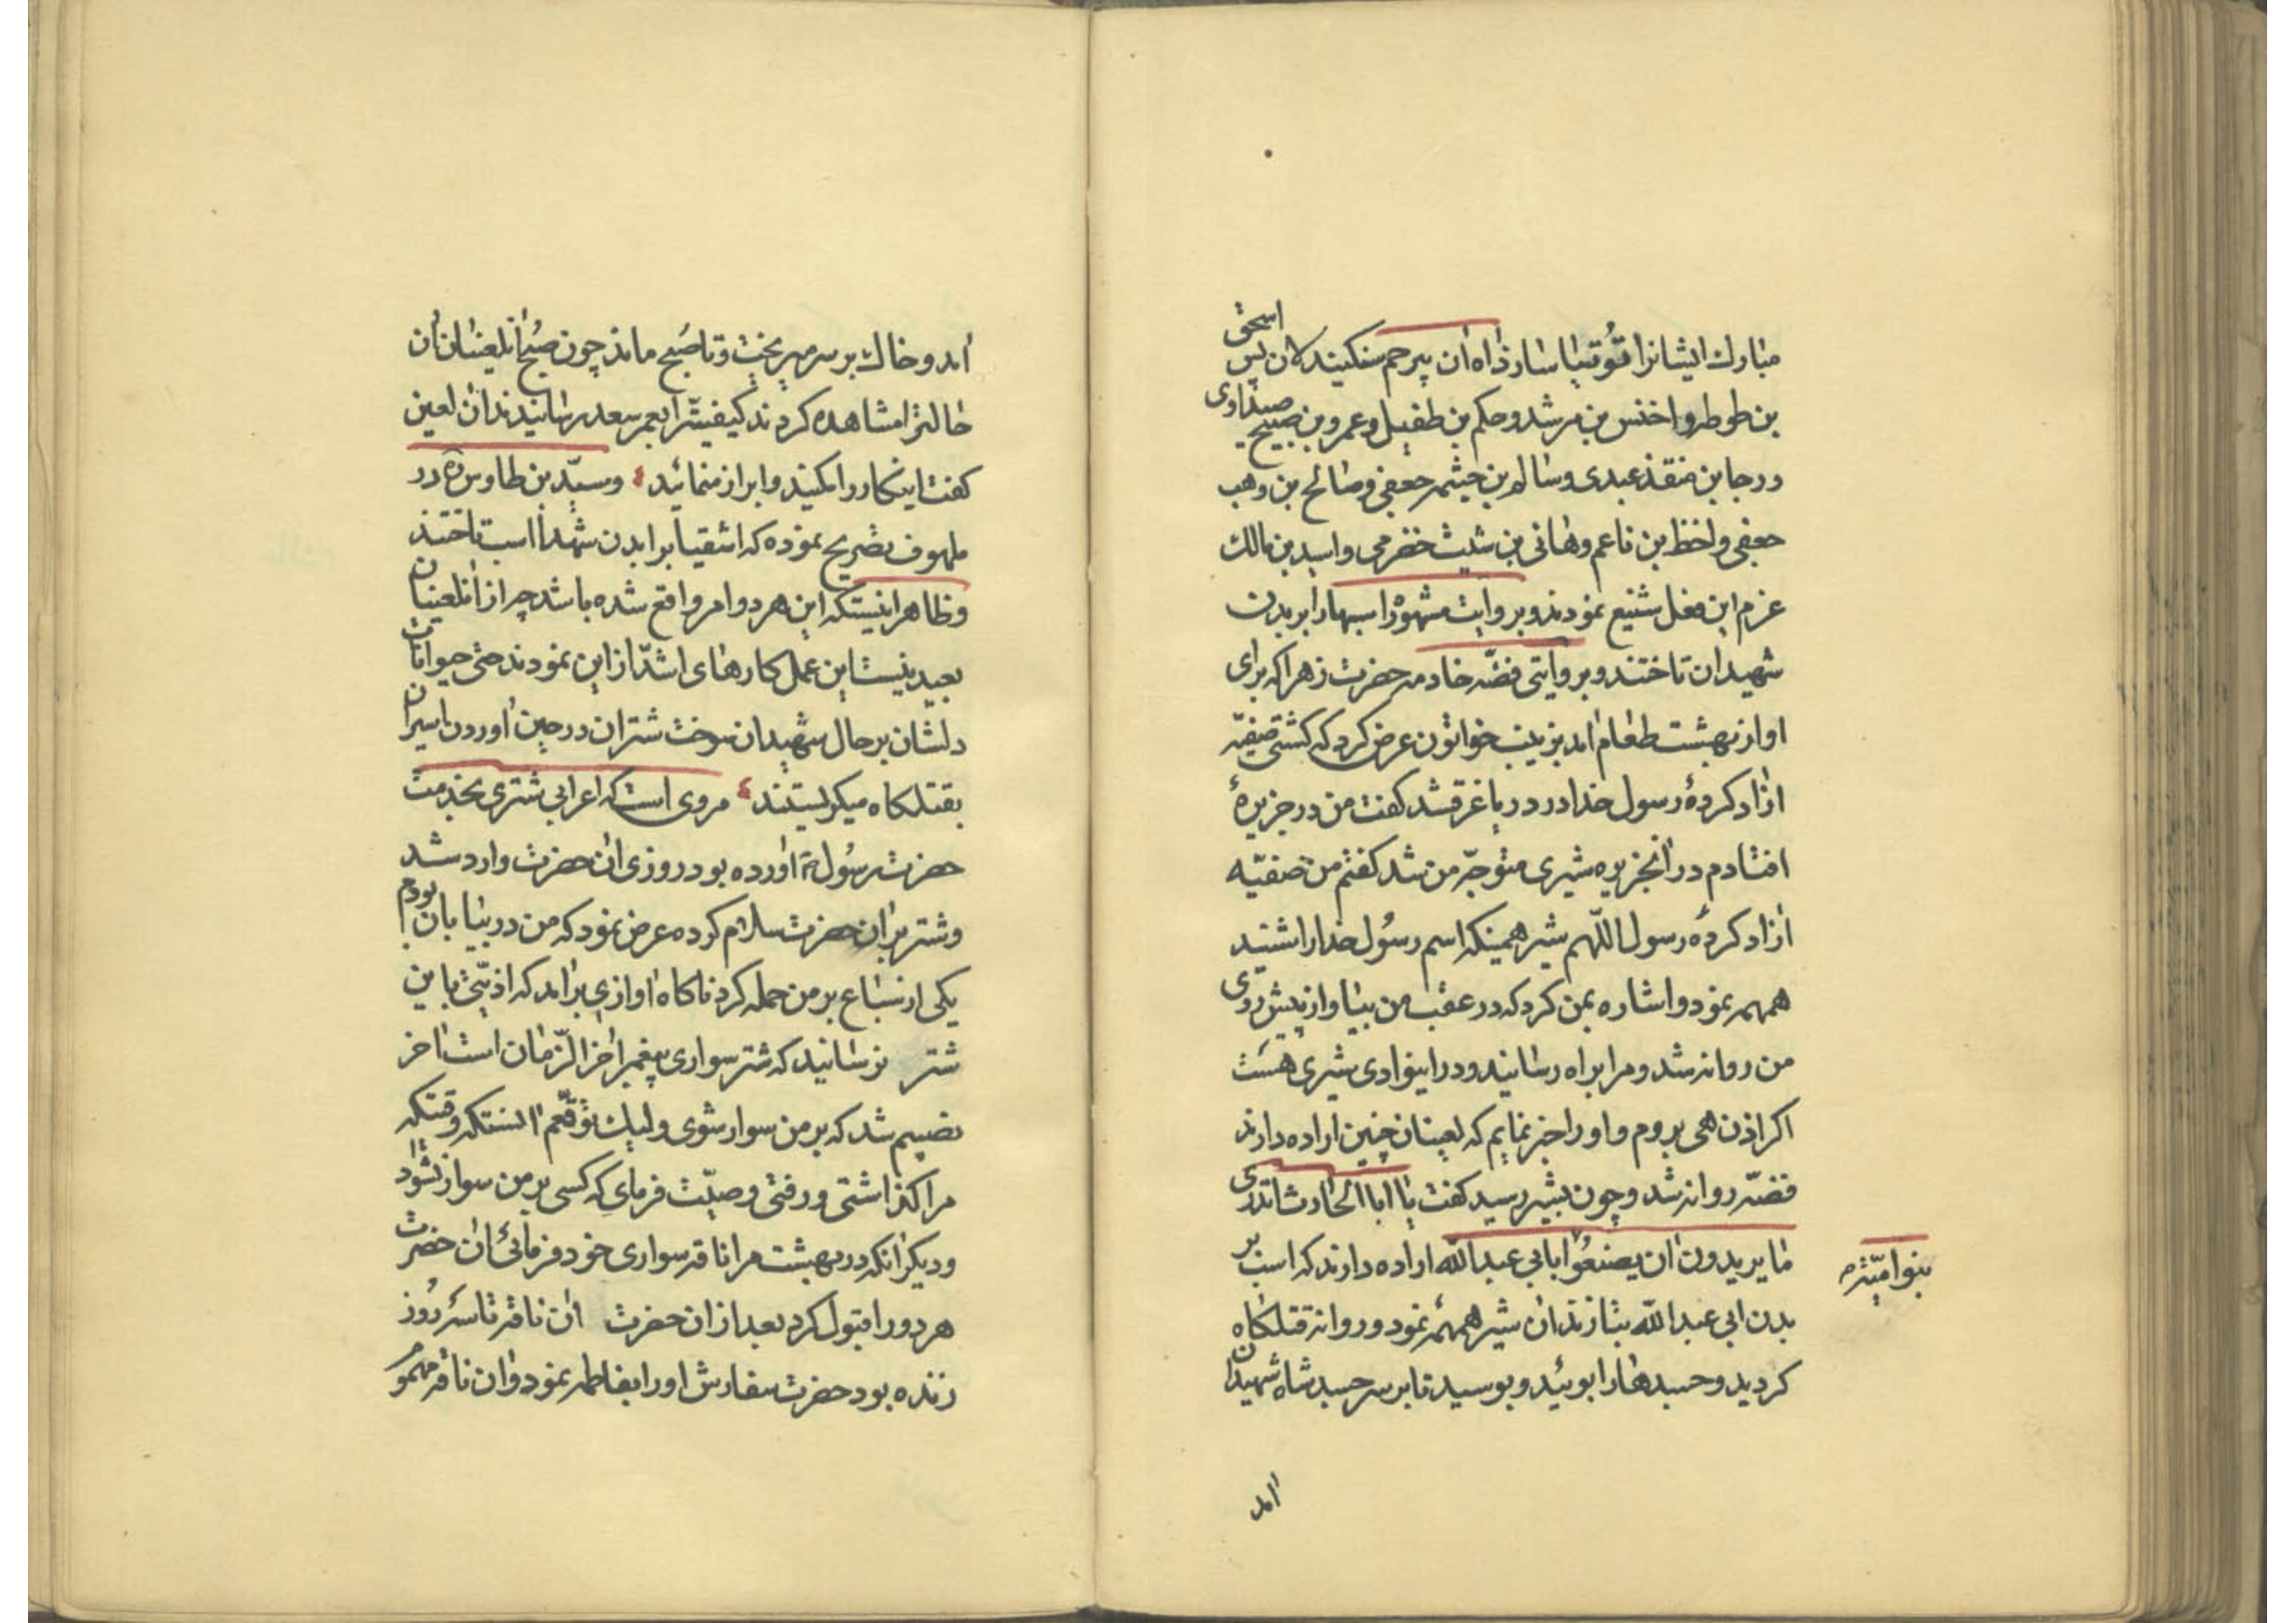 مبارک ایشانرا قُوتیا سازد آه از ان پیر حم سنکیند لان پس اسحق
بن طوطر و اخنس بن مرشد و حکم بن طفیل و عمرو بن صبیح صیداوی
ورجا بن منقذ عبدی و سالم بن خیثمر جعفی و صالح بن وهب
جعفی و اخظ بن ناعم و هانی بن شیث خضرمی و اسید بن مالک
عزم این فعل شنیع نمودند و بروایت مشهور اسبها را بر بدن
شهیدان تاختند و بروایتی فضّه خادمه حضرت زهرا که برای
او از بهشت طعام امد بزینب خواتون عرض کرد که کشتی صفیّه
ازاد کردهٔ رسول خدا در دریا غرقشد کفت من در جزیرهٔ
افتادم در انجزیره شیری متوجّه من شد کفتم من صفیّه
ازاد کردهٔ رسول اللّهم شیر همینکه اسم رسُول خدا را شنید
همهمه نمود و اشاره بمن کرد که در عقب من بیا و از پیش روی
من روانه شد و مرا براه رسانید و در اینوادی شیری هست
اکر اذن دهی بروم و او را خبر نمایم که لعینان چنین اراده دارند
فضّه روانه شد و چون بشیر رسید کفت یا ابا الحادث اتدری
ما یریدون ان یصنعُوا بابی عبد اللّه اراده دارند که اسب بر
بنوا امیّه
بدن ابی عبد اللّه بتازند ان شیر همهمه نمود و روانه قتلکاه
کردید و جسدها را بوئید و بوسید تا بر سر جسد شاه شهیدان
امد
امد و خاک بر سر میریخت و تا صُبح ماند چون صُبح انلعینان ان
حالترا مشاهده کردند کیفیّترا بعمر سعد رسانیدند ان لعین
کفت اینکار را مکنید و ابراز منمائید و سیّد بن طاوس ره در
ملهوف تصریح نموده که اشقیا بر ابدن شهدا اسب تاختند
و ظاهر اینستکه این هر دو امر واقع شده باشد چه از انلعینان
بعید نیست این عمل کارهای اشدّ از این نمودند حتی حیوانات
دلشان بر حال شهیدان سوخت شتران در حین اوردن اسیران
بقتلکاه میکریستند مروی است که اعرابی شتری بخدمت
حضرت رسُول ص اورده بود روزی ان حضرت وارد شد
و شتر بر ان حضرت سلام کرده عرض نمود که من در بیابان بودم
یکی از سباع بر من حمله کرد ناکاه اوازی برامد که اذیّتی باین
شتر نرسانید که شتر سواری پیغمبر اخر الزّمان است اخر
نصیبم شد که بر من سوار شوی ولیک توقّعم انستکه وقتیکه
مرا کذاشتی و رفتی وصیّت فرمای که کسی بر من سوار نشود
و دیکر انکه در بهشت مرا ناقه سواری خود فرمائی ان حضرت
هر دو را قبول کرد بعد از ان حضرت ان ناقه تا سه رُوز
زنده بود حضرت سفارش او را بفاطمه نمود و ان ناقه مهمو